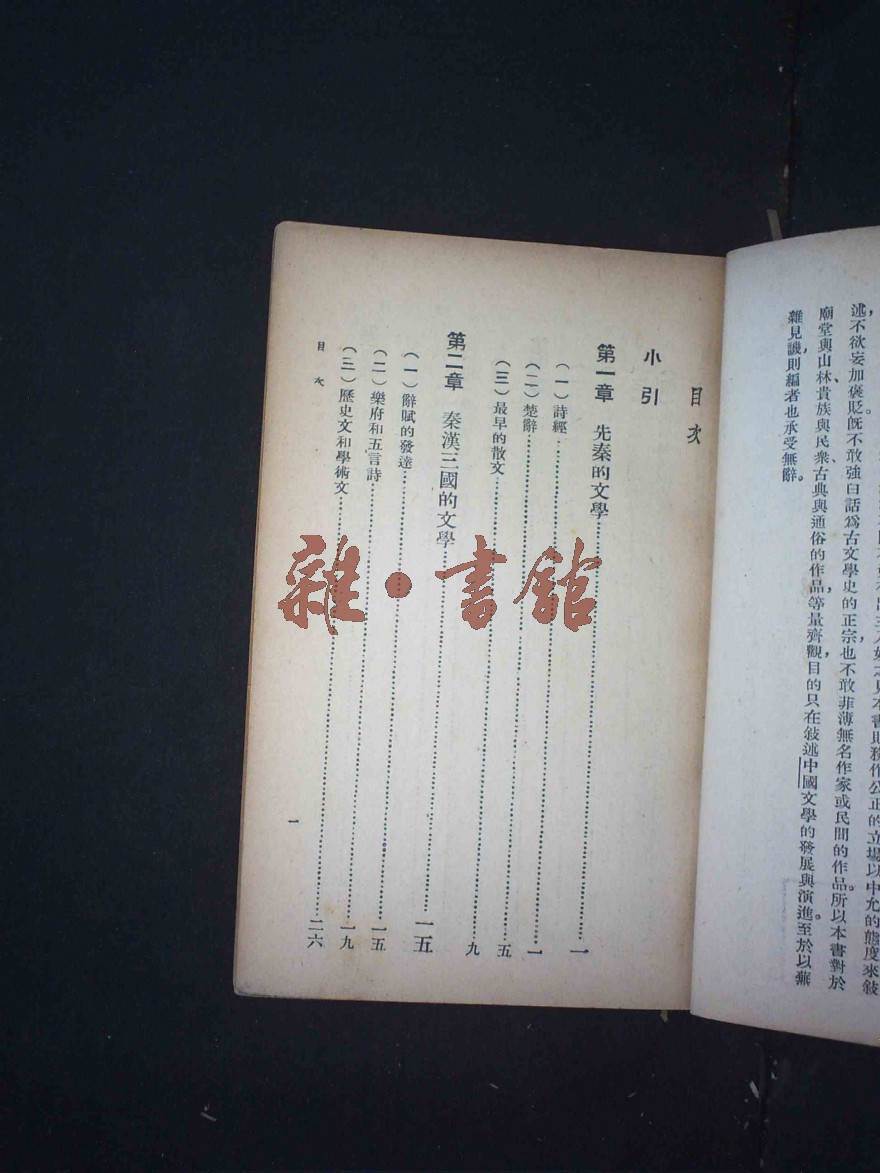 述不欲妄加褒貶旣不敢強白話爲古文學史的正宗也不敢菲薄無名作家或民間的作品。所以本書對於
廟堂與山林、貴族與民衆、古典與通俗的作品，等量齊觀目的只在敍述中國文學的發展與演進。至於以蕪
雜見譏，則編者也承受無辭。
目次
小引
第一章 先秦的文學……一
（一）詩經……一
（二）楚辭……五
（三）最早的散文……九
第二章 秦漢三國的文學……一五
（一）辭賦的發達……一五
（二）樂府和五言詩……一九
（三）歷史文和學術文……二六
目次
一
雜·書館